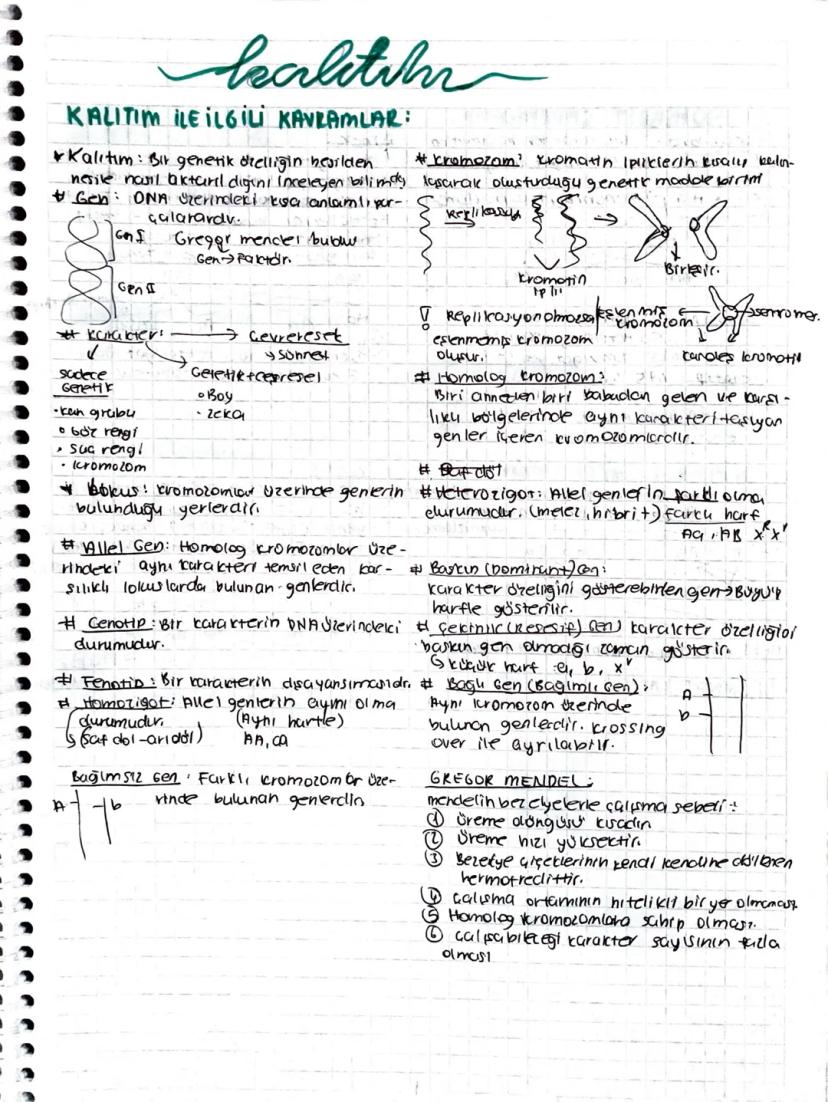 kalıtım
KALITIM İLE İLGİLİ KAVRAMLAR:
* Kalıtım: Bir genetik özelliğin nesilden
nesile nasıl aktarıldığını inceleyen bilim
# Gen: DNA üzerindeki kısa anlamlı par-
çalarardır.
Gen I
Gregor mendel buldu
Gen → Faktör.
Gen II
# Karakter: → Çevresel
→ sünnet
sadece
Genetik
Genetik+çevresel
• Boy
• zeka
• kan grubu
• göz rengi
• saç rengi
• kromozom
* Lokus: kromozomlar üzerinde genlerin
bulunduğu yerlerdir.
# Allel Gen: Homolog kromozomlar üze-
rindeki aynı karakteri temsil eden kar-
şılıklı lokuslarda bulunan genlerdir.
# Genotip: Bir karakterin DNA üzerindeki
durumudur.
# Fenotip: Bir karakterin dışa yansımasıdır.
# Homozigot: Allel genlerin aynı olma
durumudur. (Aynı harfle)
(saf döl-arı döl) AA, aa
Bağımsız Gen: Farklı kromozomlar üze-
rinde bulunan genlerdir.
A b
# Kromozom: kromatin ipliklerin kısalıp kalın-
laşarak oluşturduğu genetik madde birimi
Replikasyon
→
kromatin
ipliği
Birleşir.
! Replikasyon olmazsa
eşlenmemiş kromozom
oluşur.
eşlenmiş
kromozom
sentromer.
kardeş kromatit
# Homolog kromozom:
Biri anneden biri babadan gelen ve karşı-
lıklı bölgelerinde aynı karakteri taşıyan
genler içeren kromozomlardır.
# Saf döl
# Heterozigot: Allel genlerin farklı olma
durumudur. (melez, hibrit) farklı harf
Aa, AB XᴿXʳ
# Baskın (Dominant) Gen:
karakter özelliğini gösterebilen gen → Büyük
harfle gösterilir.
# Çekinik (Resesif) Gen) karakter özelliğini
baskın gen olmadığı zaman gösterir.
↳ küçük harf a, b, xʳ
# Bağlı Gen (Bağımlı Gen):
Aynı kromozom üzerinde
bulunan genlerdir. krossing
over ile ayrılabilir.
A
b
GREGOR MENDEL:
mendelin bezelyelerle çalışma sebebi:
① üreme döngüsü kısadır.
② üreme hızı yüksektir.
③ Bezelye çiçeklerinin kendi kendine döllenen
④ çalışma ortamının nitelikli bir yer olmaması
⑤ Homolog kromozomlara sahip olması.
⑥ çalışabileceği karakter sayısının fazla
olması